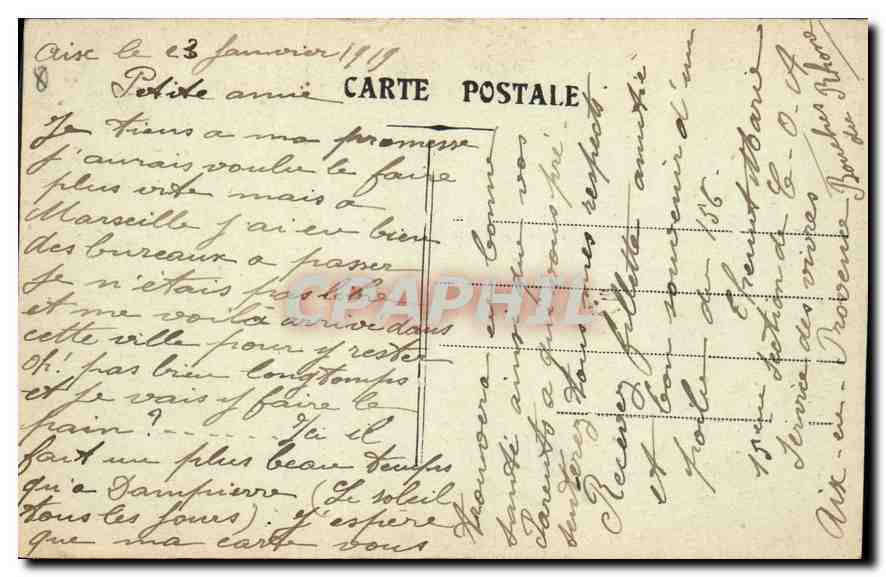 Aix le 23 Janvier 1919
Petite amie
CARTE POSTALE
Je tiens a ma promesse
j'aurais voulu le faire
plus vite mais a
Marseille j'ai eu bien
des bureaux a passer
je n'étais pas libre
et me voila arrivé dans
cette ville pour y rester
oh! pas bien longtemps
et je vais y faire le
pain? ........ Ici il
fait un plus beau temps
qu'a Dampierre (Le soleil
tous les jours). J'espère
que ma carte vous
trouvera en bonne
santé ainsi que vos
Parents a qui vous pré-
senterez tous mes respects
Recevez fillette amitié
et bon souvenir d'un
poilu du 156.
Marie
15eme Section de C.O.A
Service des vivres
Aix-en-Provence Bouches du Rhone
CPAPHIL